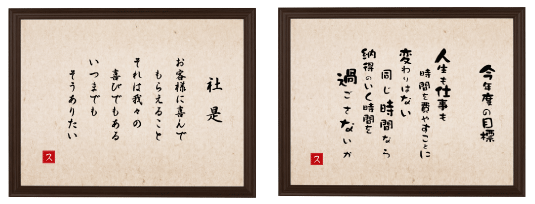 社是
お客様に喜んで
もらえること
それは我々の
喜びでもある
いつまでも
そうありたい
ス
今年度の目標
人生も仕事も
時間を費やすことに
変わりはない
同じ時間なら
納得のいく時間を
過ごさないか
ス